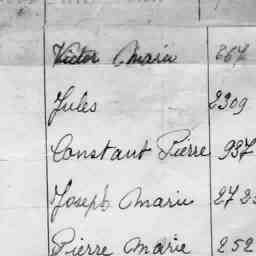 Victor Marie 867
Jules 2309
Constant Pierre 937
Joseph Marie 272
Pierre Marie 252